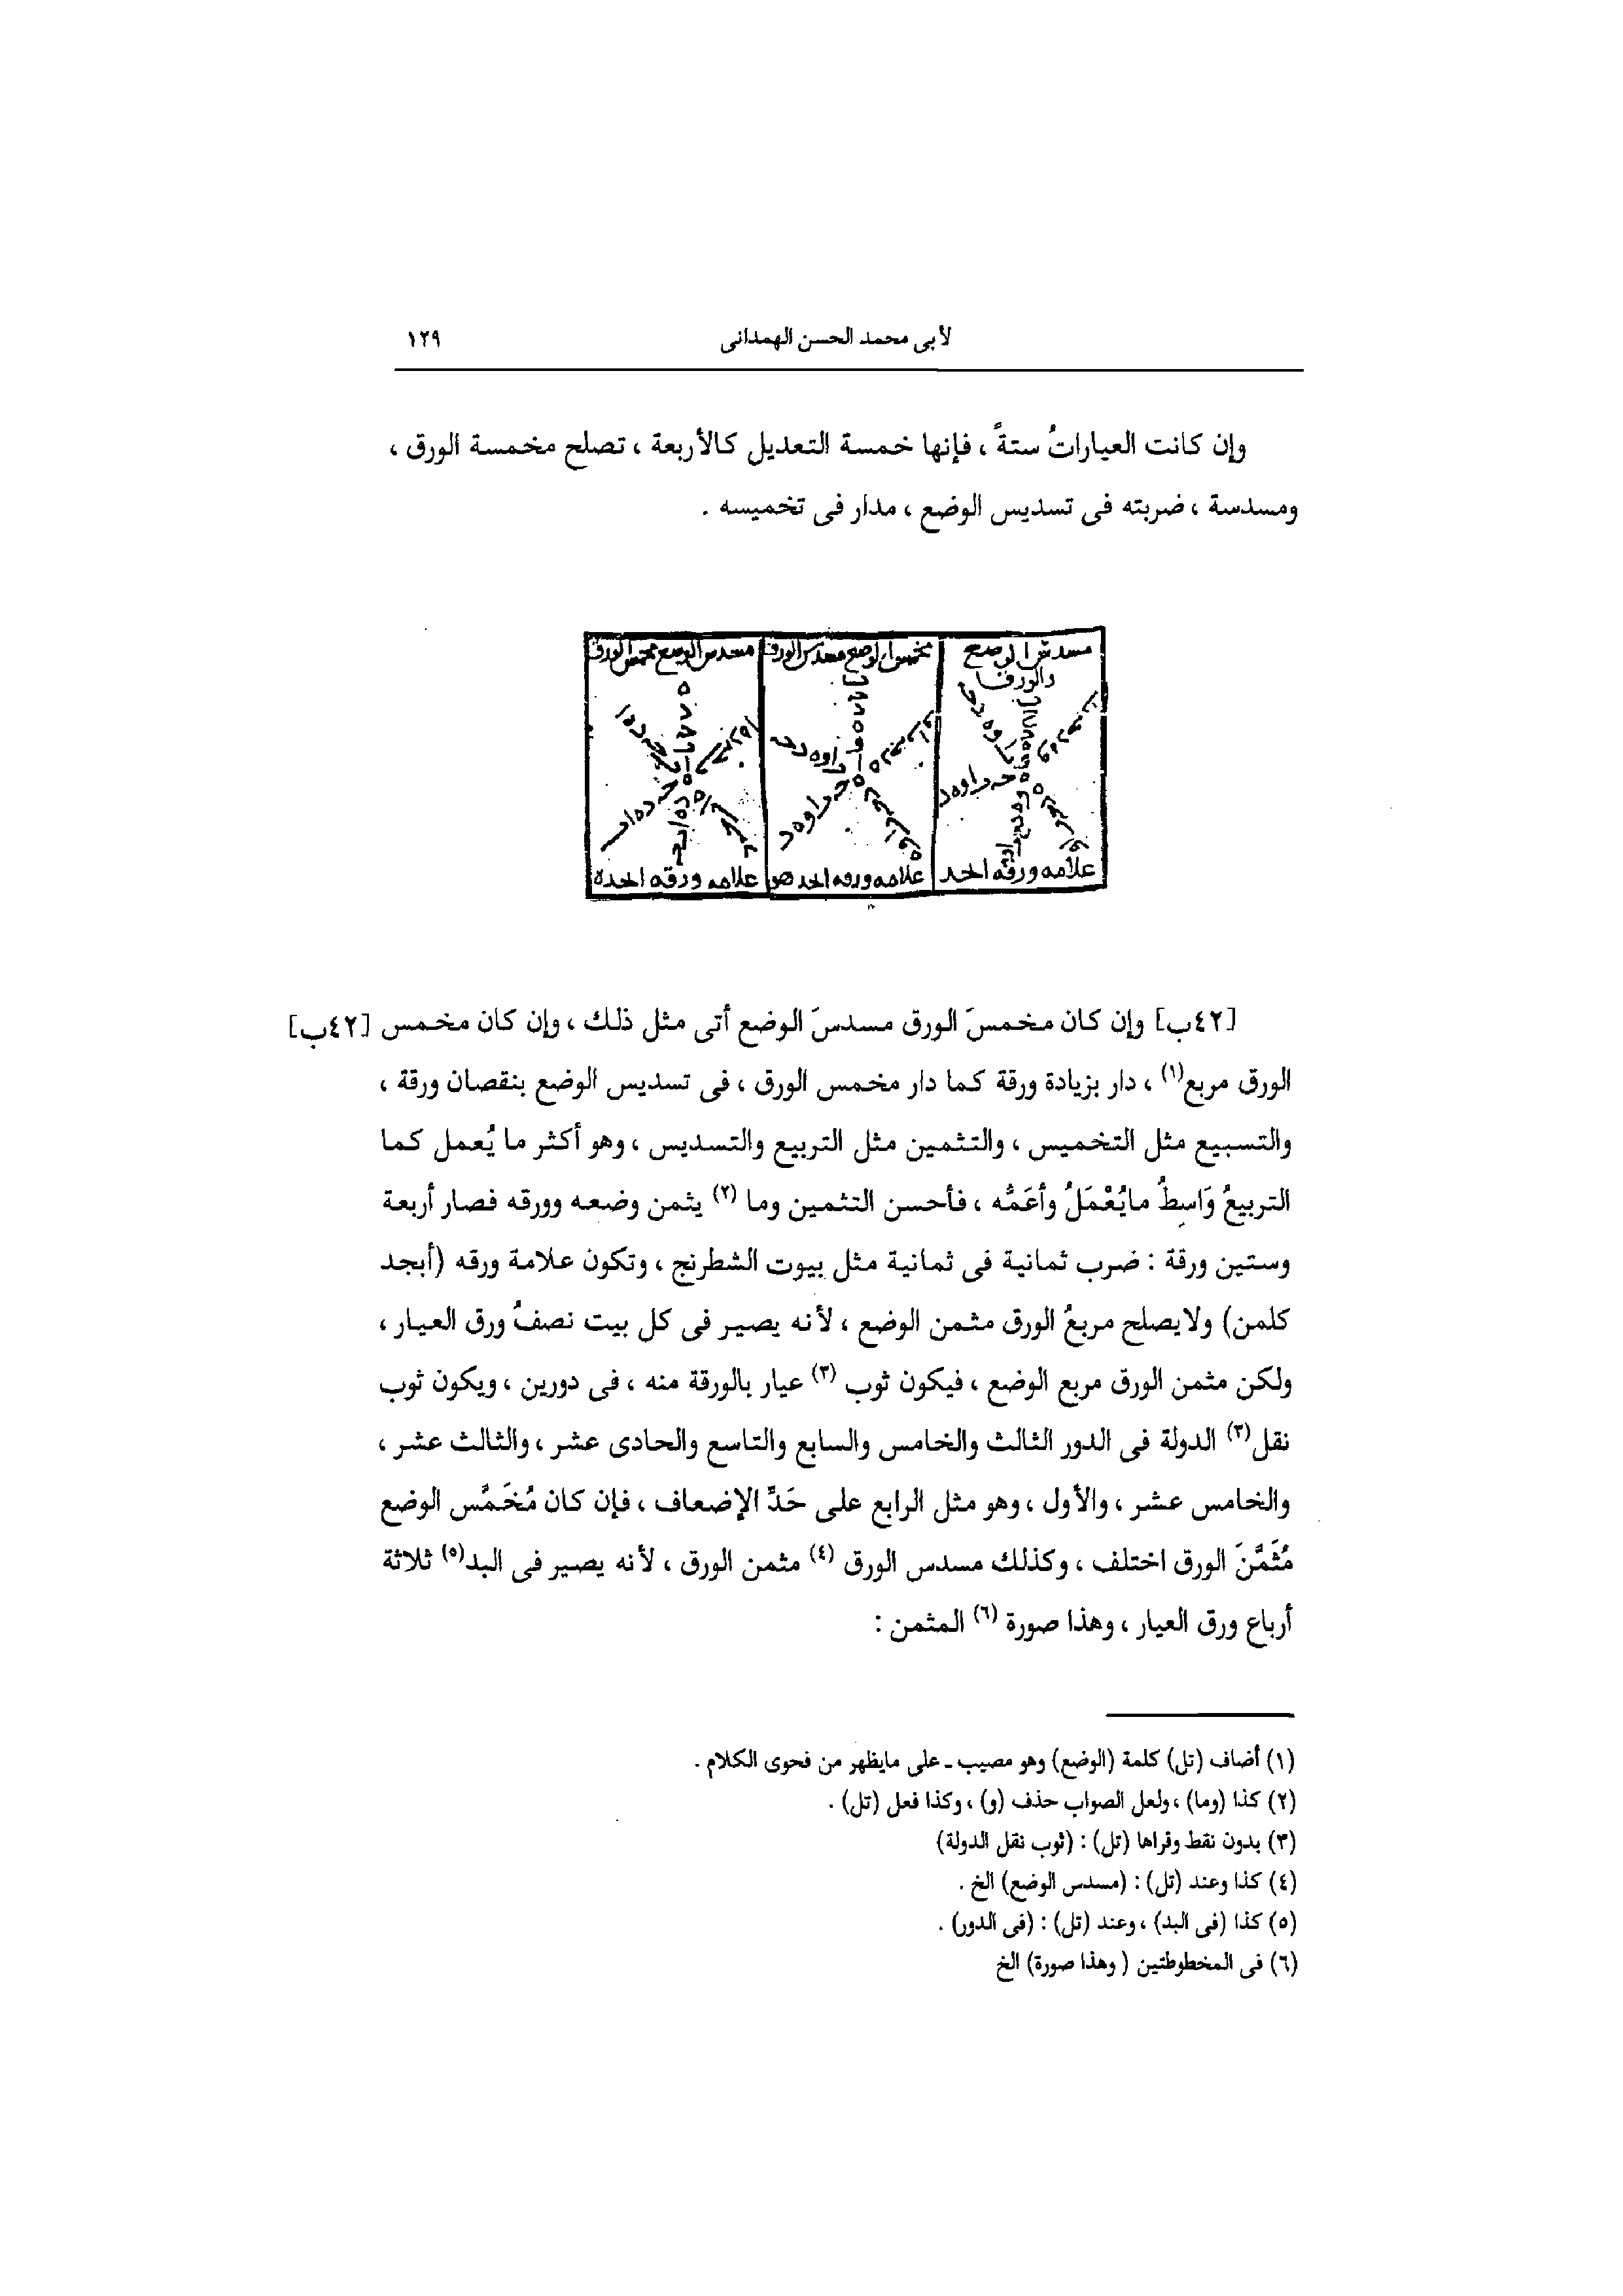 لأبى محمد الحسن الهمدانى ١٢٩
وإن كانت العياراتُ ستةً ، فإنها خمسة التعديل كالأربعة ، تصلح مخمسة الورق ،
ومسدسة ، ضربته فى تسديس الوضع ، مدار فى تخميسه .
مسدس الوضع
والورق
مخمس الوضع مسدس الورق
مسدس الوضع مخمس الورق
علامه ورقه
علامه ورقه
علامه ورقه
[٤٢ب] وإن كان مخمسَ الورق مسدسَ الوضع أتى مثل ذلك ، وإن كان مخمس [٤٢ب]
الورق مربع(١) ، دار بزيادة ورقة كما دار مخمس الورق ، فى تسديس الوضع بنقصان ورقة ،
والتسبيع مثل التخميس ، والتثمين مثل التربيع والتسديس ، وهو أكثر ما يُعمل كما
التربيعُ وَاسِطُ مايُعْمَلُ وأعَمُّه ، فأحسن التثمين وما (٢) يثمن وضعه وورقه فصار أربعة
وستين ورقة : ضرب ثمانية فى ثمانية مثل بيوت الشطرنج ، وتكون علامة ورقه (أبجد
كلمن) ولايصلح مربعُ الورق مثمن الوضع ، لأنه يصير فى كل بيت نصفُ ورق العيار ،
ولكن مثمن الورق مربع الوضع ، فيكون ثوب (٣) عيار بالورقة منه ، فى دورين ، ويكون ثوب
نقل(٣) الدولة فى الدور الثالث والخامس والسابع والتاسع والحادى عشر ، والثالث عشر ،
والخامس عشر ، والأول ، وهو مثل الرابع على حَدِّ الإضعاف ، فإن كان مُخَمَّس الوضع
مُثَمَّنَ الورق اختلف ، وكذلك مسدس الورق (٤) مثمن الورق ، لأنه يصير فى البد(٥) ثلاثة
أرباع ورق العيار ، وهذا صورة (٦) المثمن :
(١) أضاف (تل) كلمة (الوضع) وهو مصيب ـ على مايظهر من فحوى الكلام .
(٢) كذا (وما) ، ولعل الصواب حذف (و) ، وكذا فعل (تل) .
(٣) بدون نقط وقراها (تل) : (ثوب نقل الدولة)
(٤) كذا وعند (تل) : (مسدس الوضع) الخ .
(٥) كذا (فى البد) ، وعند (تل) : (فى الدور) .
(٦) فى المخطوطتين ( وهذا صورة) الخ